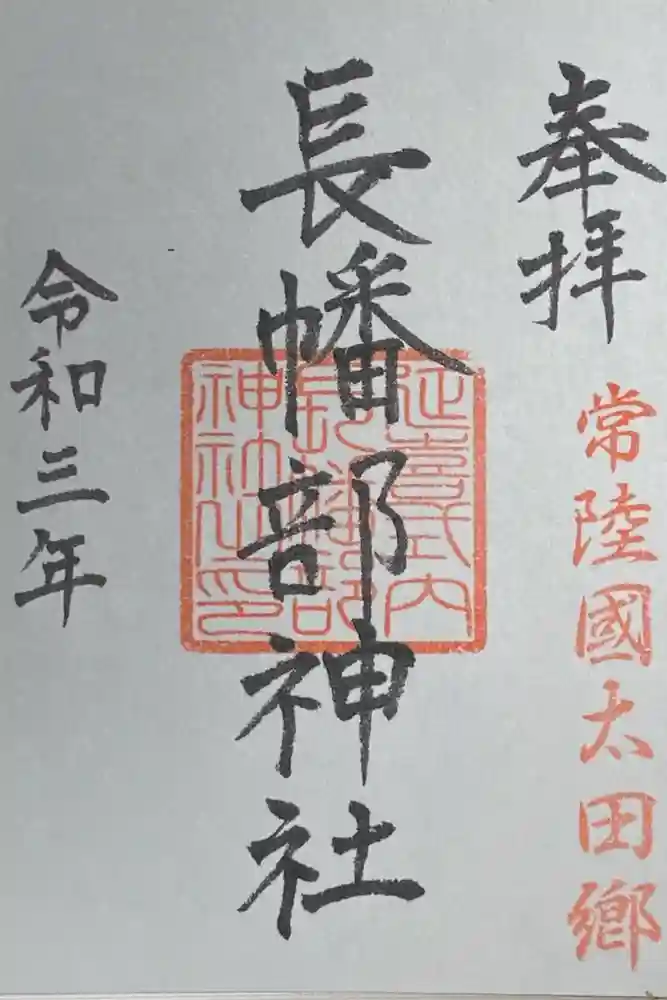 奉拝
常陸國太田鄉
長幡部神社
延喜式内
長幡部
神社之印
令和三年